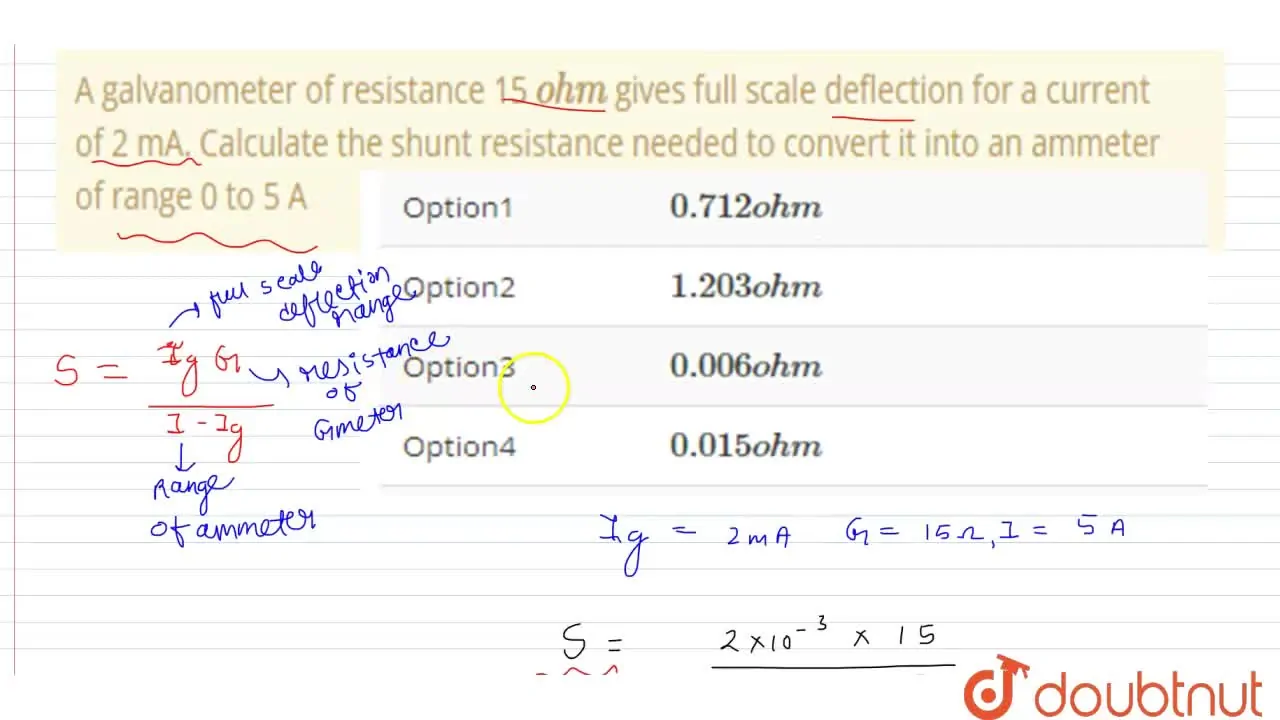 A galvanometer of resistance 15 ohm gives full scale deflection for a current
of 2 mA. Calculate the shunt resistance needed to convert it into an ammeter
of range 0 to 5 A
Option1 0.712ohm
Option2 1.203ohm
Option3 0.006ohm
Option4 0.015ohm
full scale
deflection
range
S = Ig G
I - Ig
resistance
of
Gmeter
Range
of ammeter
Ig = 2mA G = 15Ω, I = 5 A
S = 2×10⁻³ × 15
doubtnut